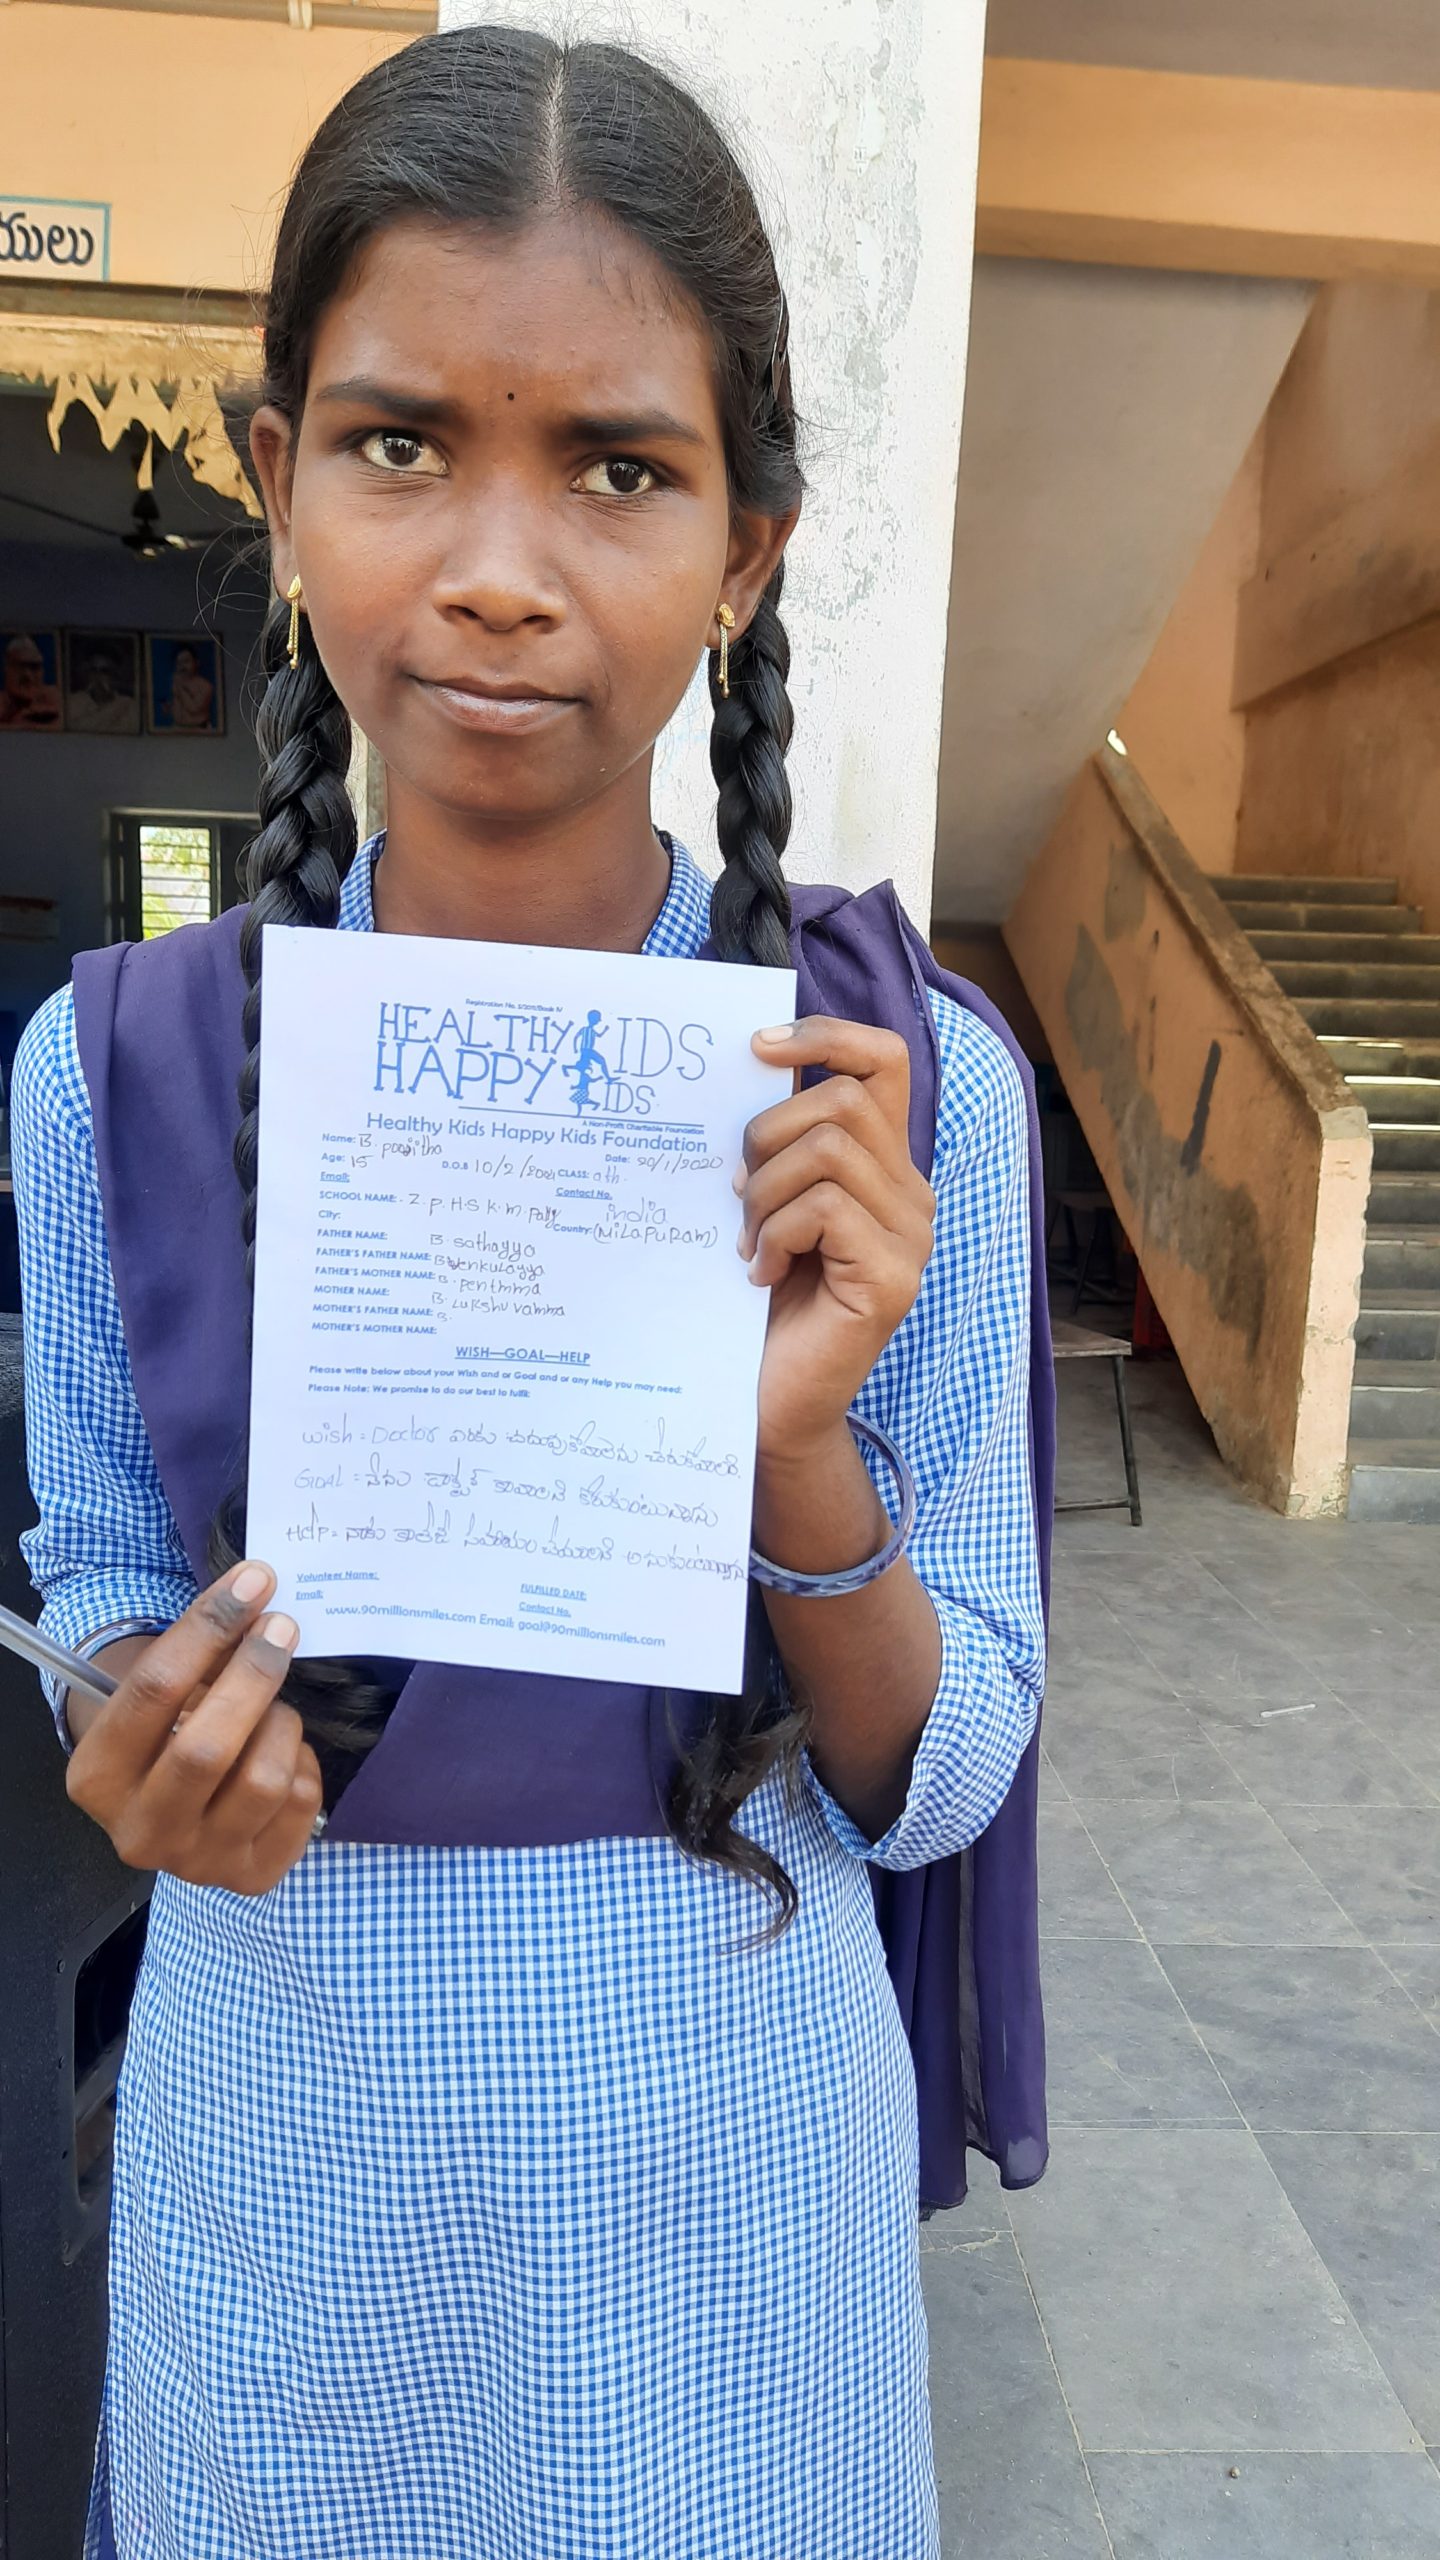 యులు
Registration No. 5/2011/Book IV
HEALTHY KIDS
HAPPY KIDS
A Non-Profit Charitable Foundation
Healthy Kids Happy Kids Foundation
Name: B. poojitha
Age: 15 D.O.B 10/2/2004 CLASS: 9th. Date: 20/1/2020
Email: Contact No.
SCHOOL NAME: - Z. P. H. S K. M. Pally india
City: Country: (MiLAPURam)
FATHER NAME: B. Sathayya
FATHER'S FATHER NAME: B venkulayya
FATHER'S MOTHER NAME: B. pentmma
MOTHER NAME: B. Lukshuvamma
MOTHER'S FATHER NAME: B.
MOTHER'S MOTHER NAME:
WISH—GOAL—HELP
Please write below about your Wish and or Goal and or any Help you may need:
Please Note: We promise to do our best to fulfil:
Wish = Doctor వరకు చదువుకోవాలను చేరుకోవాలి.
GOAL = నేను డాక్టర్ కావాలని కోరుకుంటున్నాను
HelP = నాకు కాలేజీ సహాయం చేయాలని అనుకుంటున్నాను
Volunteer Name: FULFILLED DATE:
Email: Contact No.
www.90millionsmiles.com Email: goal@90millionsmiles.com